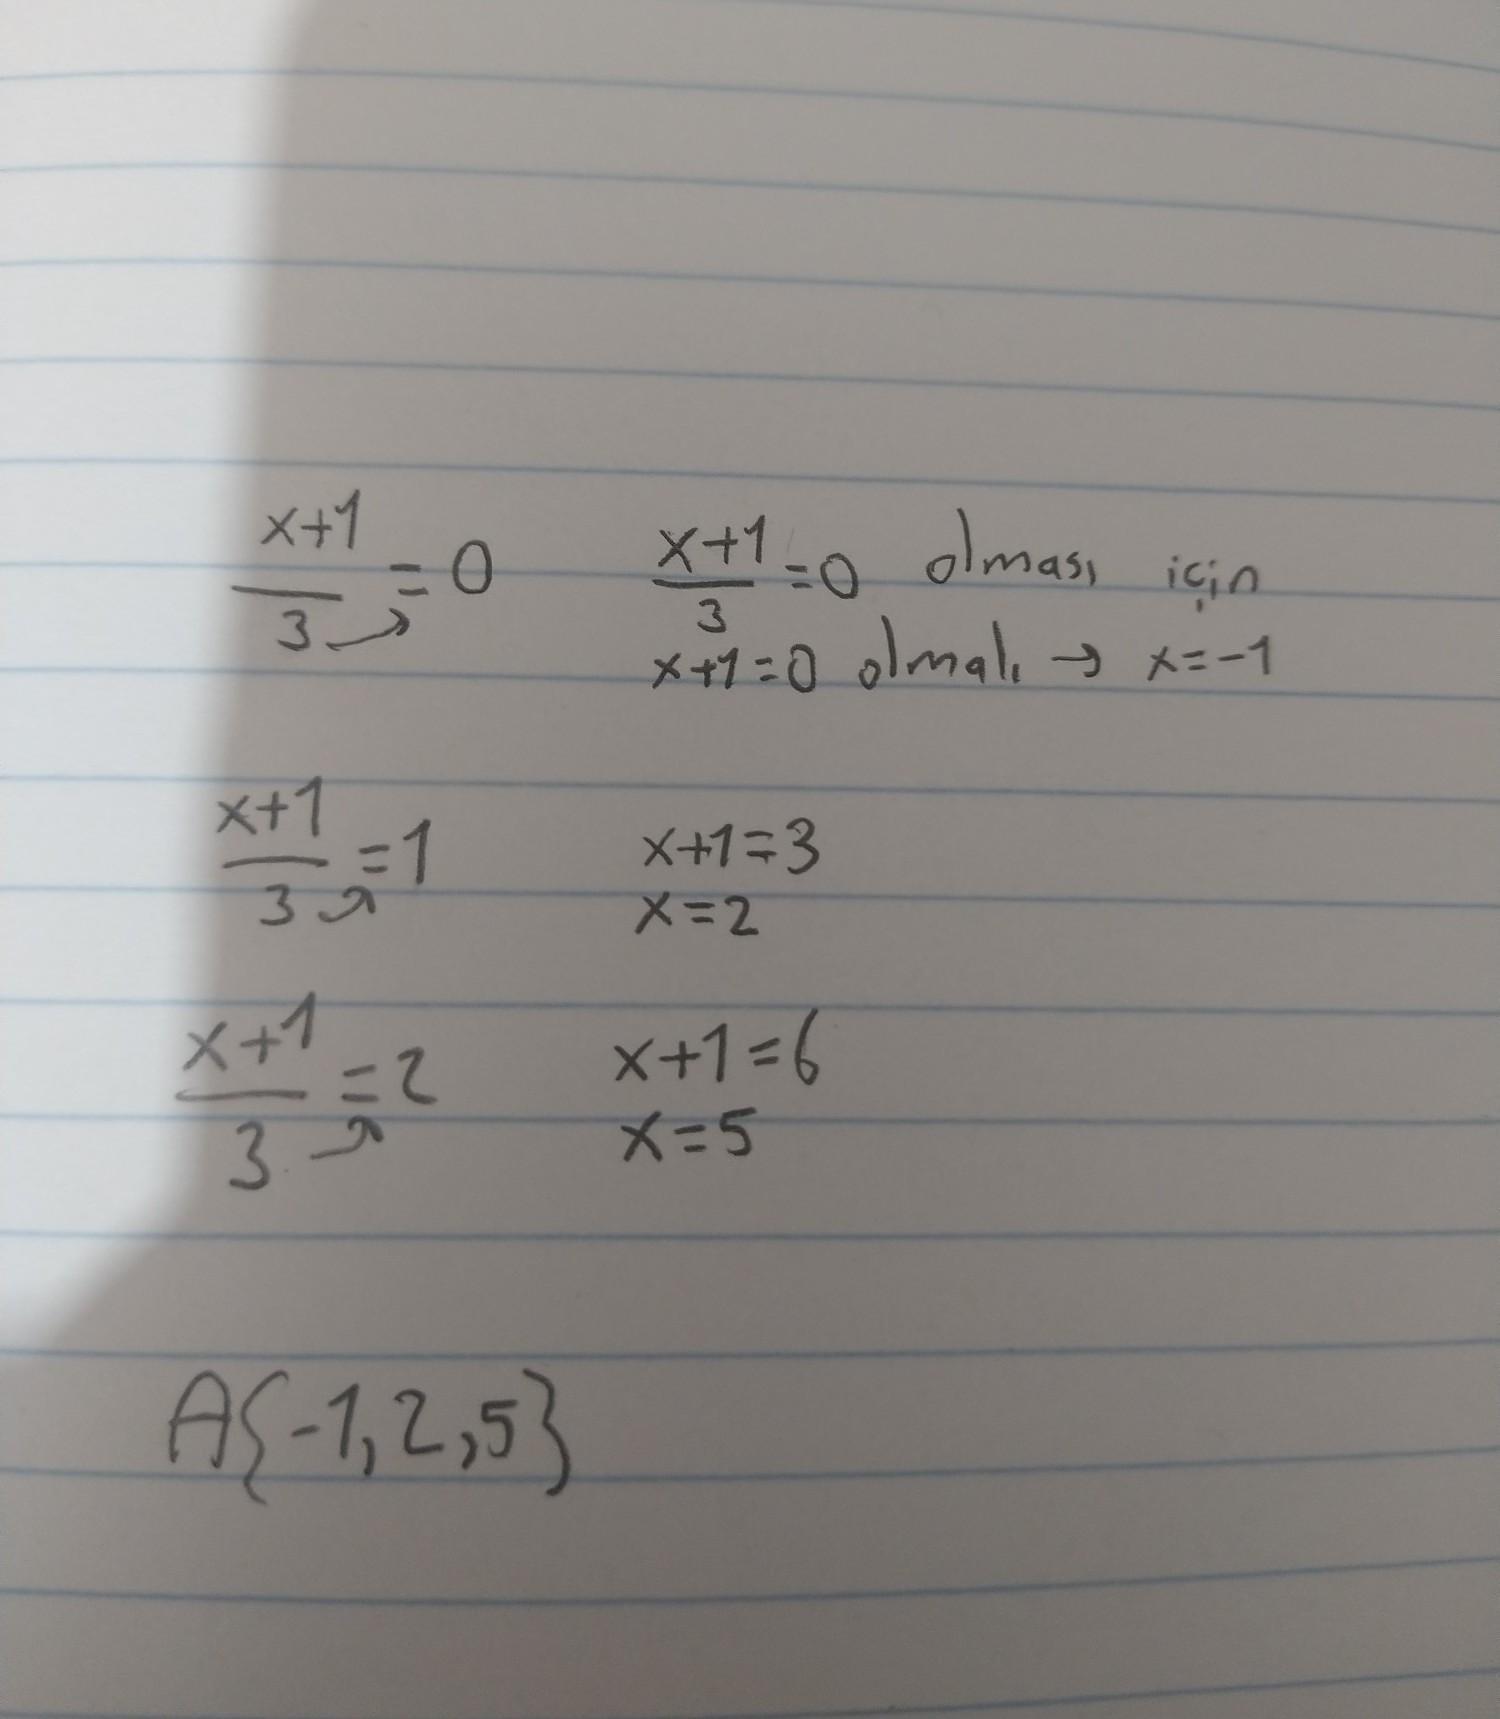 x+1/3 = 0    x+1/3 = 0 olması için
x+1=0 olmalı → x=-1
x+1/3 = 1    x+1=3
x=2
x+1/3 = 2    x+1=6
x=5
A{-1,2,5}